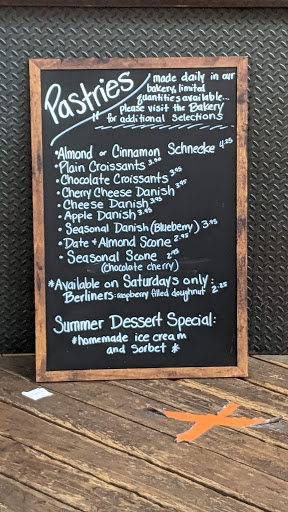 Pastries
made daily in our
bakery, limited
quantities available...
please visit the Bakery
for additional selections
• Almond or Cinnamon Schnecke 4.25
• Plain Croissants 3.00
• Chocolate Croissants 3.95
• Cherry Cheese Danish 3.95
• Cheese Danish 3.95
• Apple Danish 3.95
• Seasonal Danish (Blueberry) 3.95
• Date + Almond Scone 2.95
• Seasonal Scone 2.95
(Chocolate cherry)
*Available on Saturdays only:
Berliners: raspberry filled doughnut 2.25
Summer Dessert Special:
*homemade ice cream
and Sorbet *